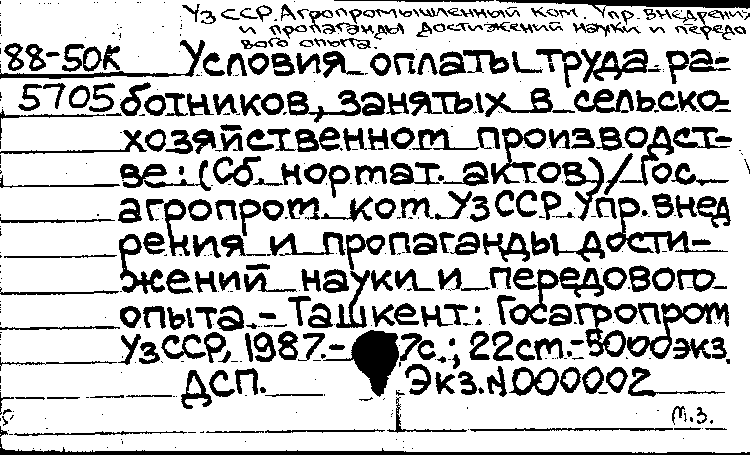 УзССР. Агропромышленный ком. Упр. внедрения
и пропаганды достижений науки и передо
вого опыта.
88-50К Условия оплаты труда ра-
5705 ботников, занятых в сельско-
хозяйственном производст-
ве: (Сб. нормат. актов) / Гос.
агропром. ком. УзССР. Упр. внед
рения и пропаганды дости-
жений науки и передового
опыта. - Ташкент: Госагропром
УзССР, 1987. - 7с.; 22см. - 5000экз.
ДСП. Экз. №000002
м.з.